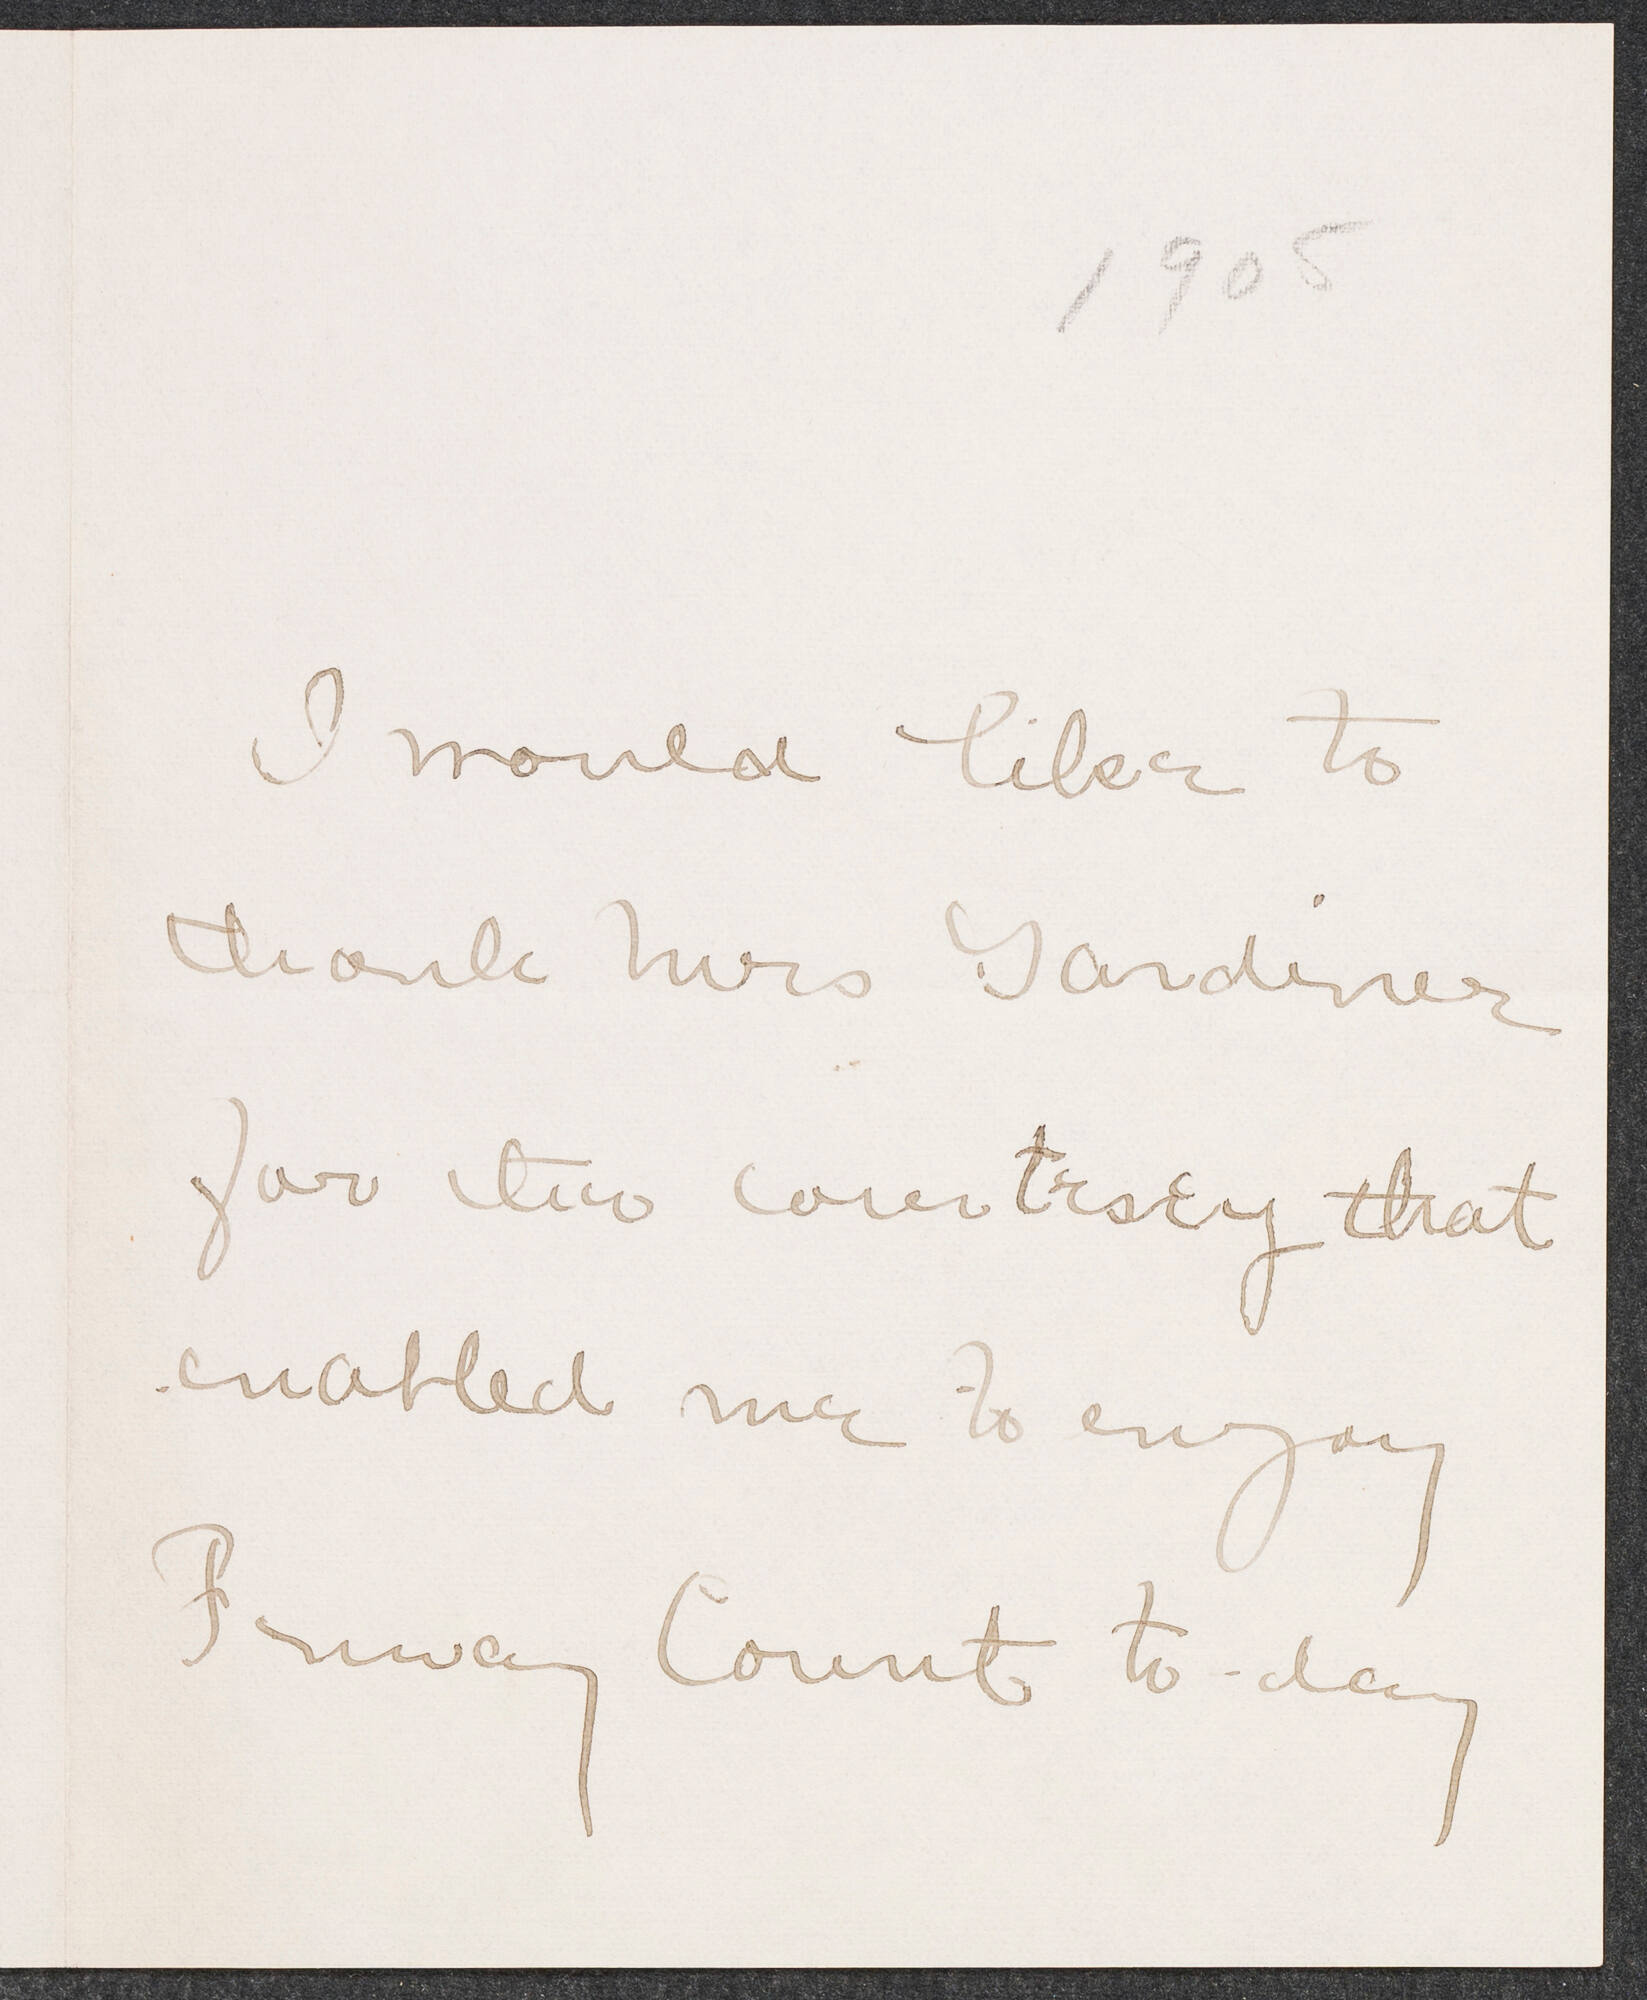 1905
I would like to
thank Mrs Gardiner
for the courtesey that
enabled me to enjoy
Fenway Court to-day